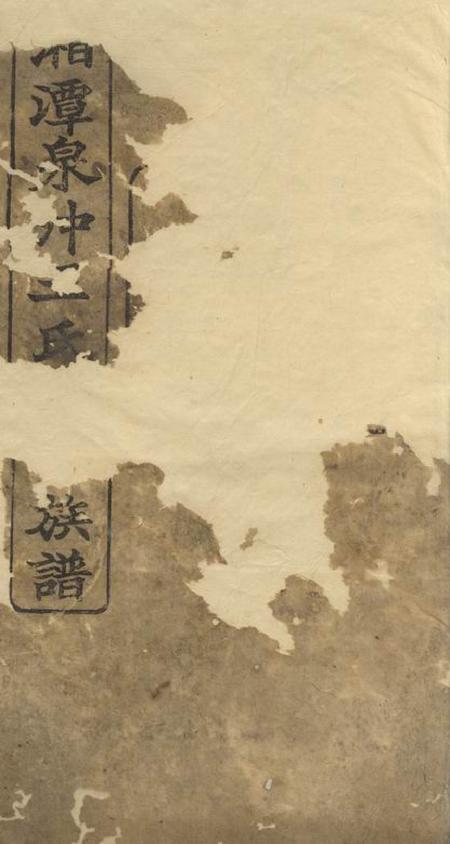 湘潭泉冲王氏族譜